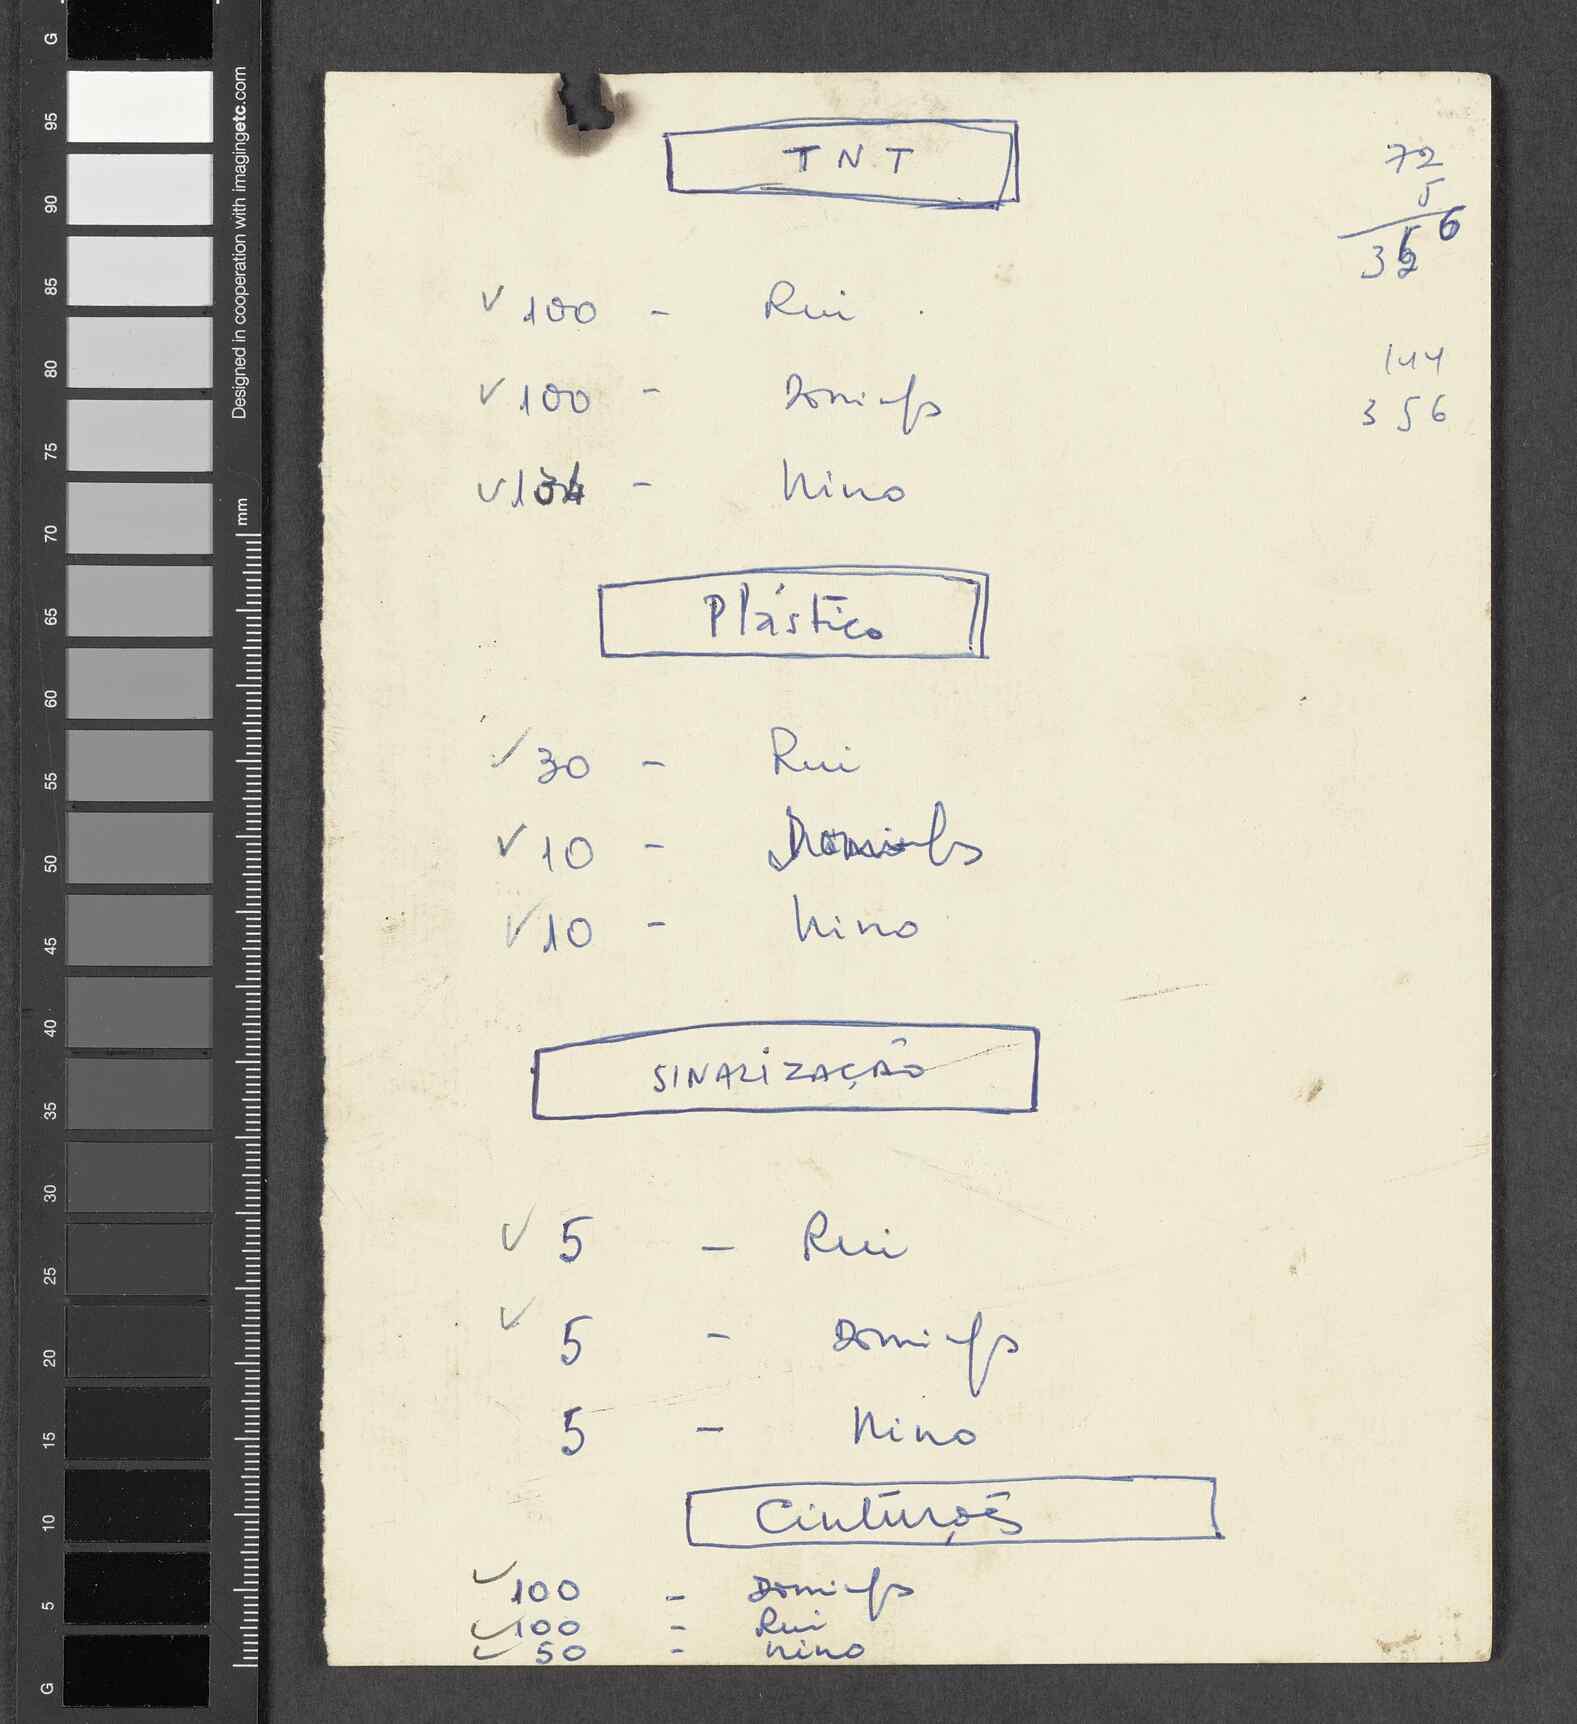 TNT
72
5
356
✓ 100 - Rui
✓ 100 - Domingos
✓ 134 - Nino
144
356
Plástico
✓ 30 - Rui
✓ 10 - Domingos
✓ 10 - Nino
SINALIZAÇÃO
✓ 5 - Rui
✓ 5 - Domingos
5 - Nino
Cinturões
✓ 100 - Domingos
✓ 100 - Rui
✓ 50 - Nino
G
95
90
85
80
75
70
65
60
55
50
45
40
35
30
25
20
15
10
5
G
Designed in cooperation with imagingetc.com
mm